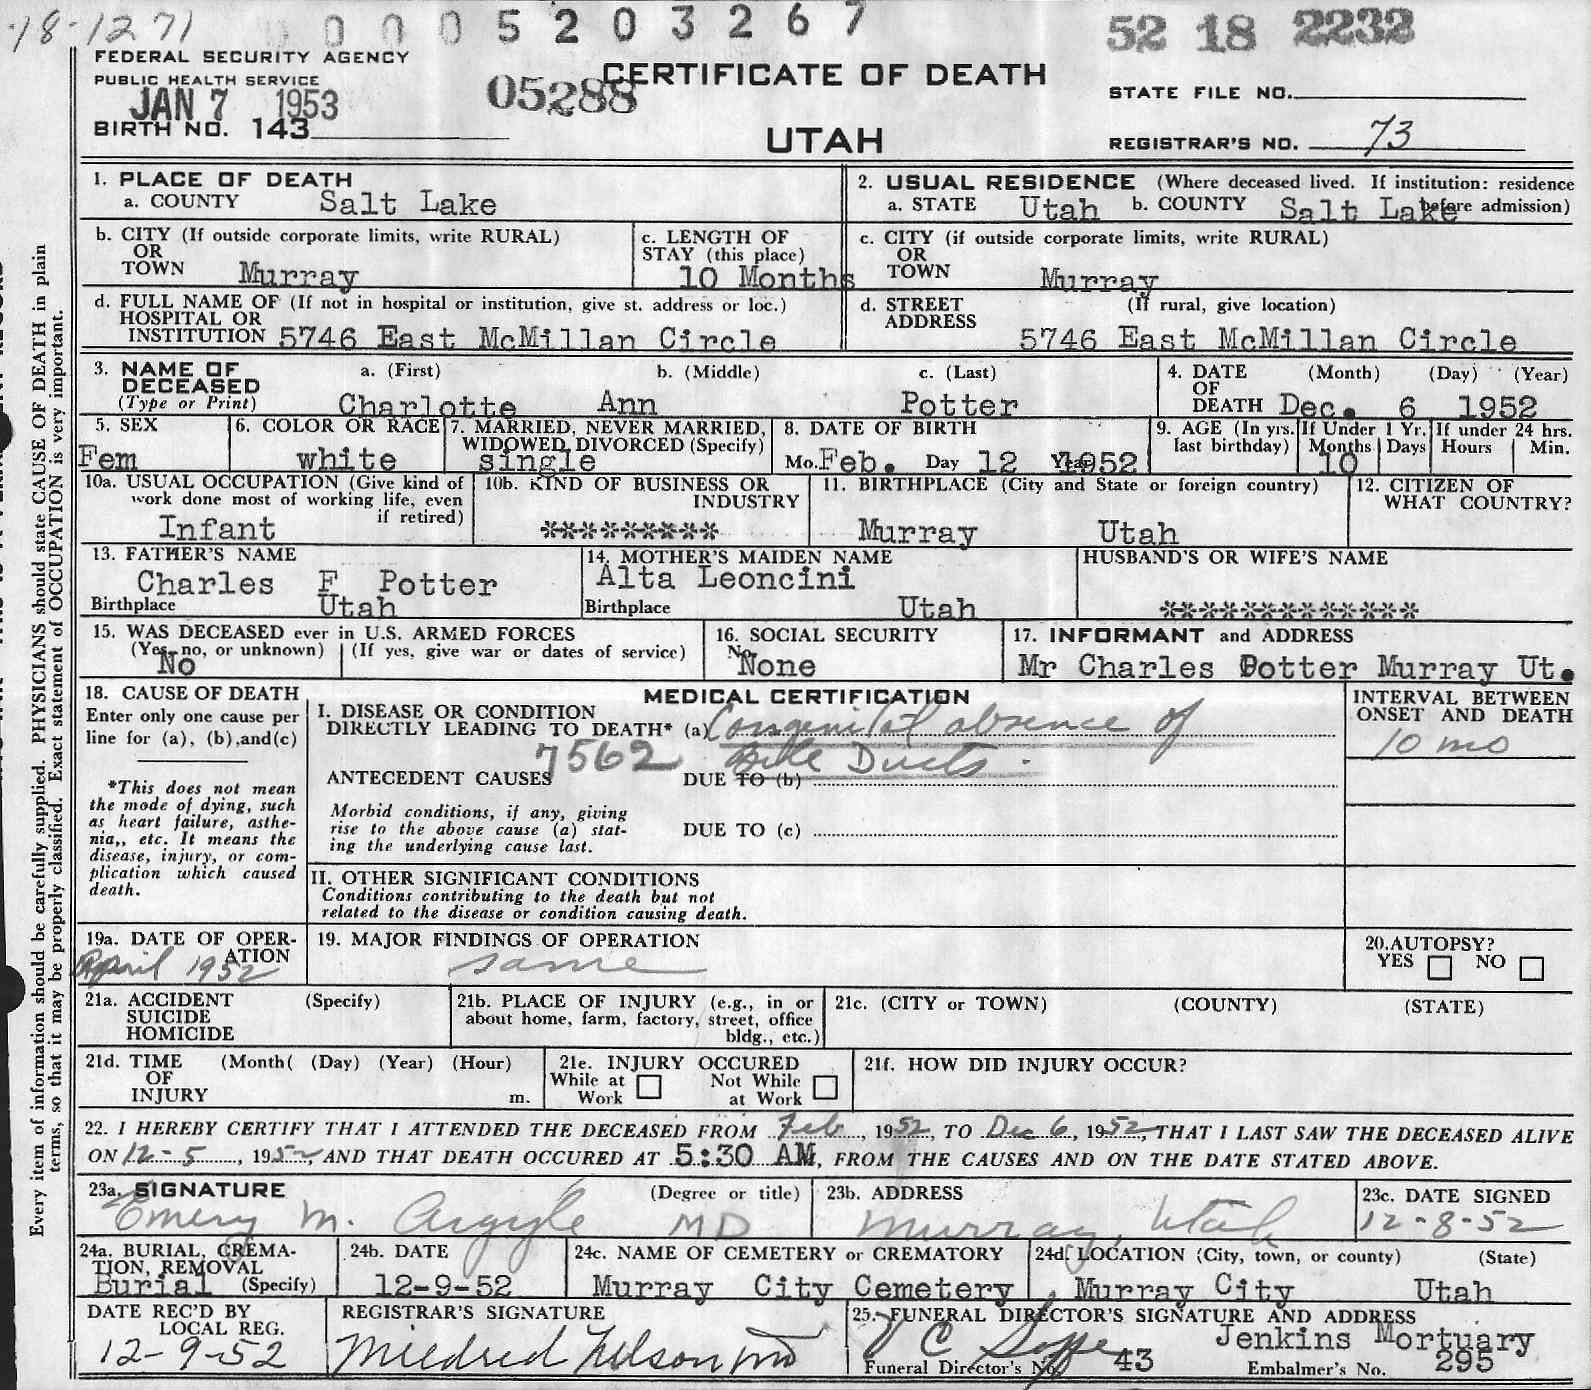 18-1271 0 0 0 5 2 0 3 2 6 7 52 18 2232
FEDERAL SECURITY AGENCY
PUBLIC HEALTH SERVICE
JAN 7 1953
BIRTH NO. 143
05288 CERTIFICATE OF DEATH
UTAH
STATE FILE NO.
REGISTRAR'S NO. 73
1. PLACE OF DEATH
a. COUNTY Salt Lake
2. USUAL RESIDENCE (Where deceased lived. If institution: residence before admission)
a. STATE Utah b. COUNTY Salt Lake
b. CITY (If outside corporate limits, write RURAL)
OR
TOWN Murray
c. LENGTH OF
STAY (this place)
10 Months
c. CITY (if outside corporate limits, write RURAL)
OR
TOWN Murray
d. FULL NAME OF (If not in hospital or institution, give st. address or loc.)
HOSPITAL OR
INSTITUTION 5746 East McMillan Circle
d. STREET (If rural, give location)
ADDRESS
5746 East McMillan Circle
3. NAME OF
DECEASED
(Type or Print)
a. (First) b. (Middle) c. (Last)
Charlotte Ann Potter
4. DATE (Month) (Day) (Year)
OF
DEATH Dec. 6 1952
5. SEX
Fem
6. COLOR OR RACE
white
7. MARRIED, NEVER MARRIED,
WIDOWED, DIVORCED (Specify)
single
8. DATE OF BIRTH
Mo. Feb. Day 12 Year 1952
9. AGE (In yrs.
last birthday)
If Under 1 Yr.
Months Days
10
If under 24 hrs.
Hours Min.
10a. USUAL OCCUPATION (Give kind of
work done most of working life, even
if retired)
Infant
10b. KIND OF BUSINESS OR
INDUSTRY
*********
11. BIRTHPLACE (City and State or foreign country)
Murray Utah
12. CITIZEN OF
WHAT COUNTRY?
13. FATHER'S NAME
Charles F Potter
Birthplace Utah
14. MOTHER'S MAIDEN NAME
Alta Leoncini
Birthplace Utah
HUSBAND'S OR WIFE'S NAME
*************
15. WAS DECEASED ever in U.S. ARMED FORCES
(Yes, no, or unknown) (If yes, give war or dates of service)
No
16. SOCIAL SECURITY
No.
None
17. INFORMANT and ADDRESS
Mr Charles Potter Murray Ut.
18. CAUSE OF DEATH
Enter only one cause per
line for (a), (b),and(c)
*This does not mean
the mode of dying, such
as heart failure, asthe-
nia,, etc. It means the
disease, injury, or com-
plication which caused
death.
MEDICAL CERTIFICATION
I. DISEASE OR CONDITION
DIRECTLY LEADING TO DEATH* (a) Congenital absence of
7562 Bile Ducts.
ANTECEDENT CAUSES DUE TO (b)
Morbid conditions, if any, giving
rise to the above cause (a) stat-
ing the underlying cause last.
DUE TO (c)
II. OTHER SIGNIFICANT CONDITIONS
Conditions contributing to the death but not
related to the disease or condition causing death.
INTERVAL BETWEEN
ONSET AND DEATH
10 mo
19a. DATE OF OPER-
ATION
April 1952
19. MAJOR FINDINGS OF OPERATION
same
20.AUTOPSY?
YES NO
21a. ACCIDENT (Specify)
SUICIDE
HOMICIDE
21b. PLACE OF INJURY (e.g., in or
about home, farm, factory, street, office
bldg., etc.)
21c. (CITY or TOWN) (COUNTY) (STATE)
21d. TIME (Month( (Day) (Year) (Hour)
OF
INJURY m.
21e. INJURY OCCURED
While at Work Not While at Work
21f. HOW DID INJURY OCCUR?
22. I HEREBY CERTIFY THAT I ATTENDED THE DECEASED FROM Feb, 1952, TO Dec 6, 1952, THAT I LAST SAW THE DECEASED ALIVE
ON 12-5, 1952, AND THAT DEATH OCCURED AT 5:30 AM, FROM THE CAUSES AND ON THE DATE STATED ABOVE.
23a. SIGNATURE (Degree or title)
Emery M. Argyle MD
23b. ADDRESS
Murray, Utah
23c. DATE SIGNED
12-8-52
24a. BURIAL, CREMA-
TION, REMOVAL
Burial (Specify)
24b. DATE
12-9-52
24c. NAME OF CEMETERY or CREMATORY
Murray City Cemetery
24d LOCATION (City, town, or county) (State)
Murray City Utah
DATE REC'D BY
LOCAL REG.
12-9-52
REGISTRAR'S SIGNATURE
Mildred Nelson
25. FUNERAL DIRECTOR'S SIGNATURE AND ADDRESS
Jenkins Mortuary
Funeral Director's No. 43 Embalmer's No. 295
Every item of information should be carefully supplied. PHYSICIANS should state CAUSE OF DEATH in plain
terms, so that it may be properly classified. Exact statement of OCCUPATION is very important.